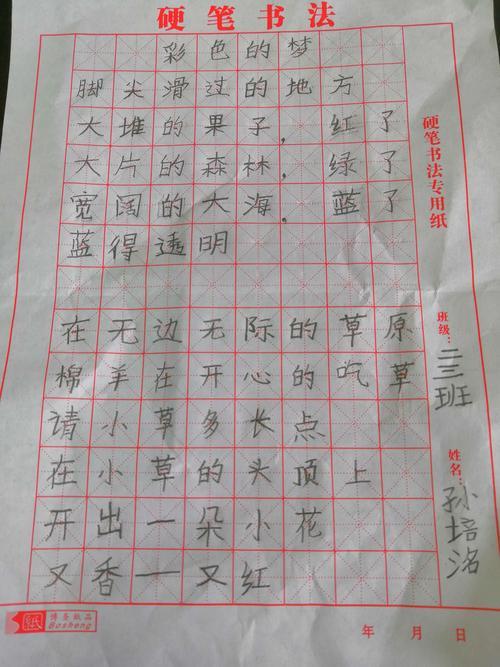 硬笔书法
彩色的梦
脚尖滑过的地方
大堆的果子，红了
大片的森林，绿了
宽阔的大海，蓝了
蓝得透明
在无边无际的草原
棉羊在开心的吃草
请小草多长点
在小草的头顶上
开出一朵小花
又香一又红
硬笔书法专用纸
班级：二三班
姓名：孙培洺
博圣纸品
Bosheng
年 月 日